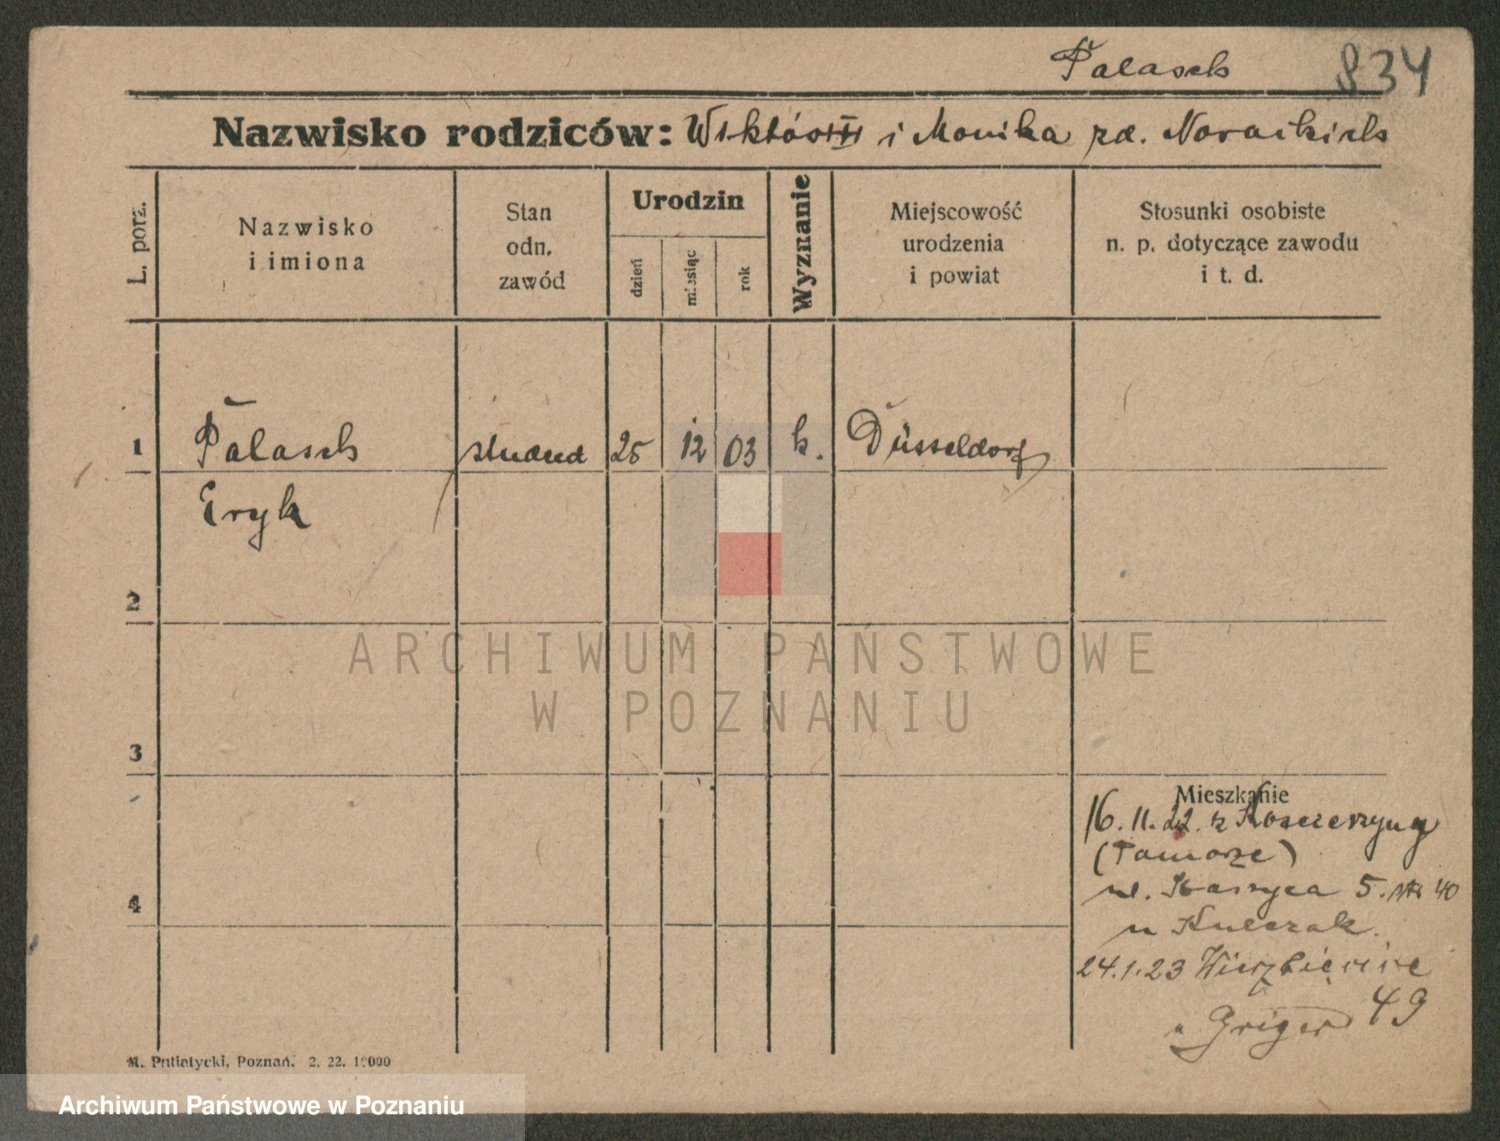 Palasch 834
Nazwisko rodziców: i Monika
L. porz.
Nazwisko
i imiona
Stan
odn.
zawód
Urodzin
dzień
miesiąc
rok
Wyznanie
Miejscowość
urodzenia
i powiat
Stosunki osobiste
n. p. dotyczące zawodu
i t. d.
1 Palasch student 25 12 03 k. Düsseldorf
Eryk
2
ARCHIWUM PAŃSTWOWE
W POZNANIU
3
Mieszkanie
16. 11. 22. z
ul. 5. 40
4
u Kulczak.
24.1.23
49
M. Putiatycki, Poznań. 2. 22. 10000
Archiwum Państwowe w Poznaniu